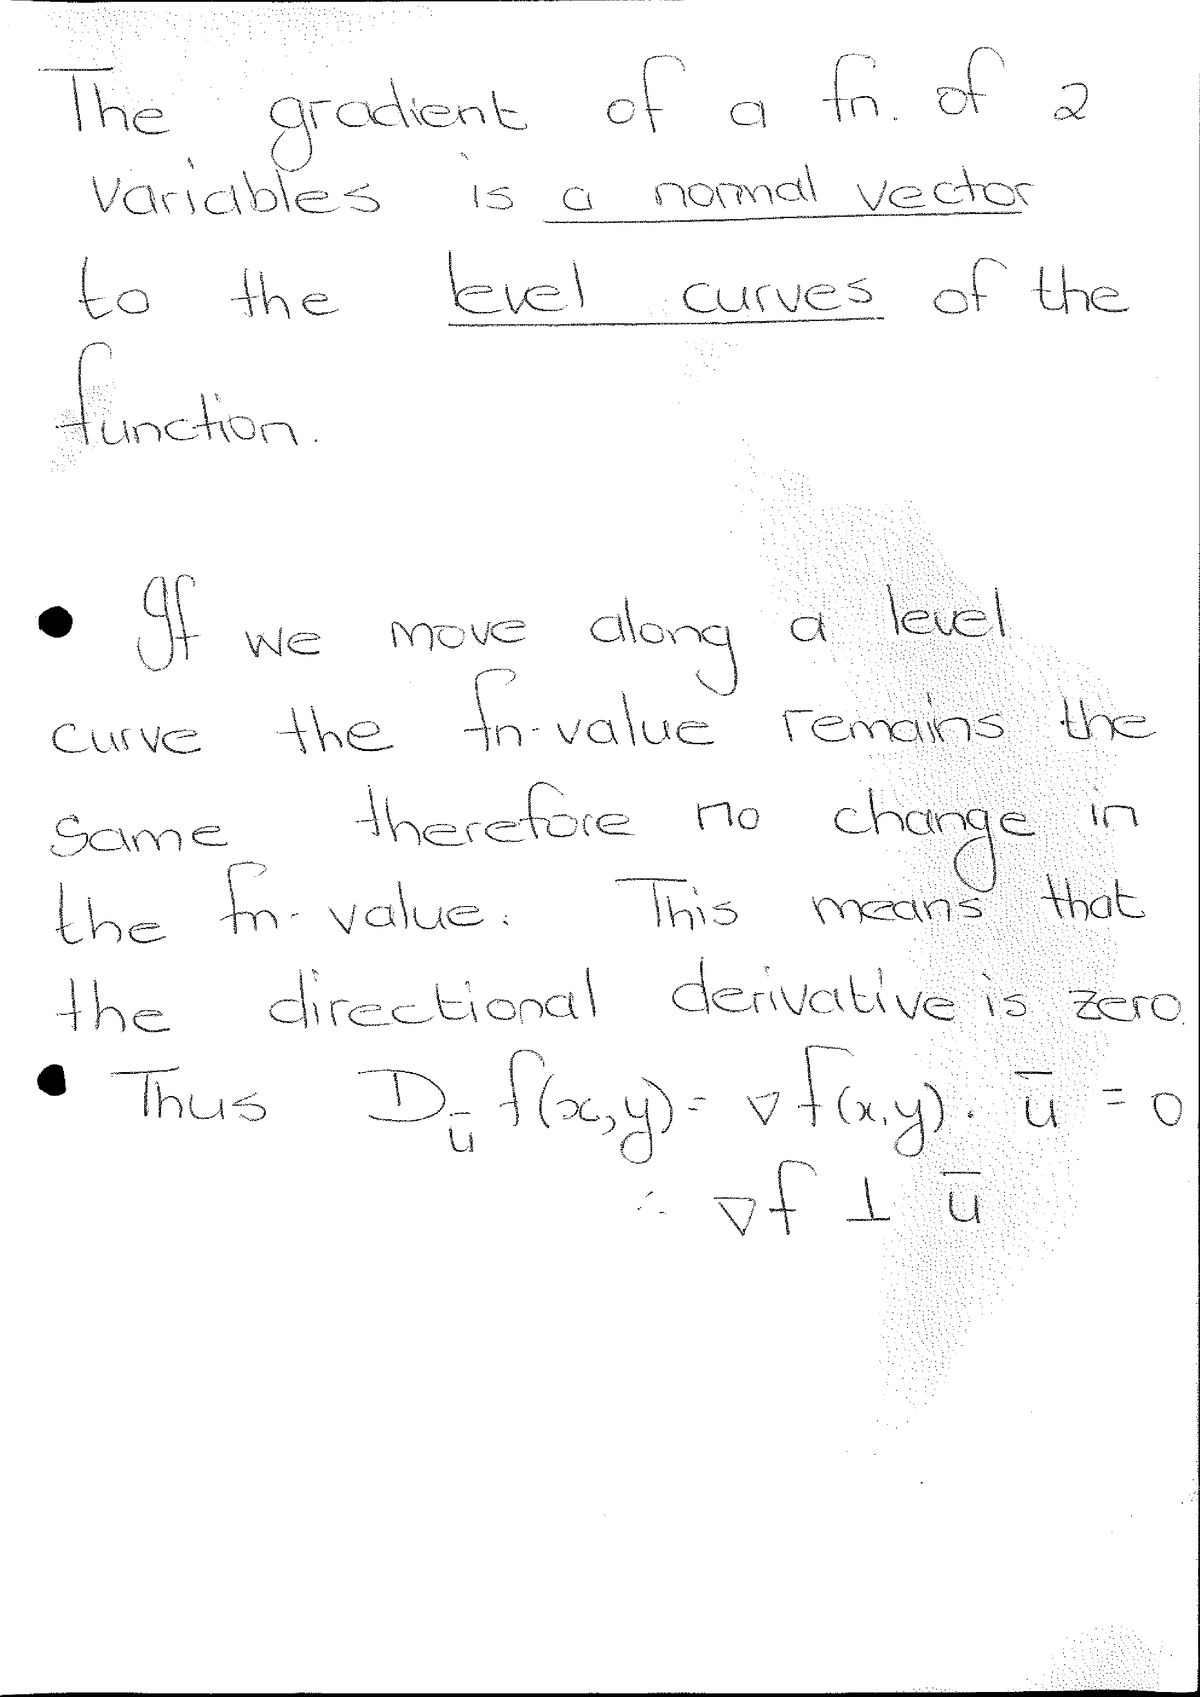 The gradient of a fn. of 2
variables is a normal vector
to the level curves of the
function.
• If we move along a level
curve the fn-value remains the
same therefore no change in
the fn-value. This means that
the directional derivative is zero.
• Thus D_ū f(x,y) = ∇f(x,y) · ū = 0
∴ ∇f ⊥ ū